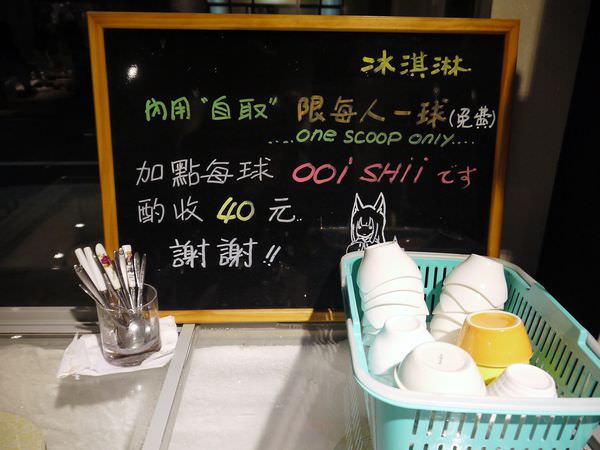 冰淇淋
內用"自取" 限每人一球(免費)
....one scoop only....
加點每球 ooishii です
酌收 40 元
謝謝!!